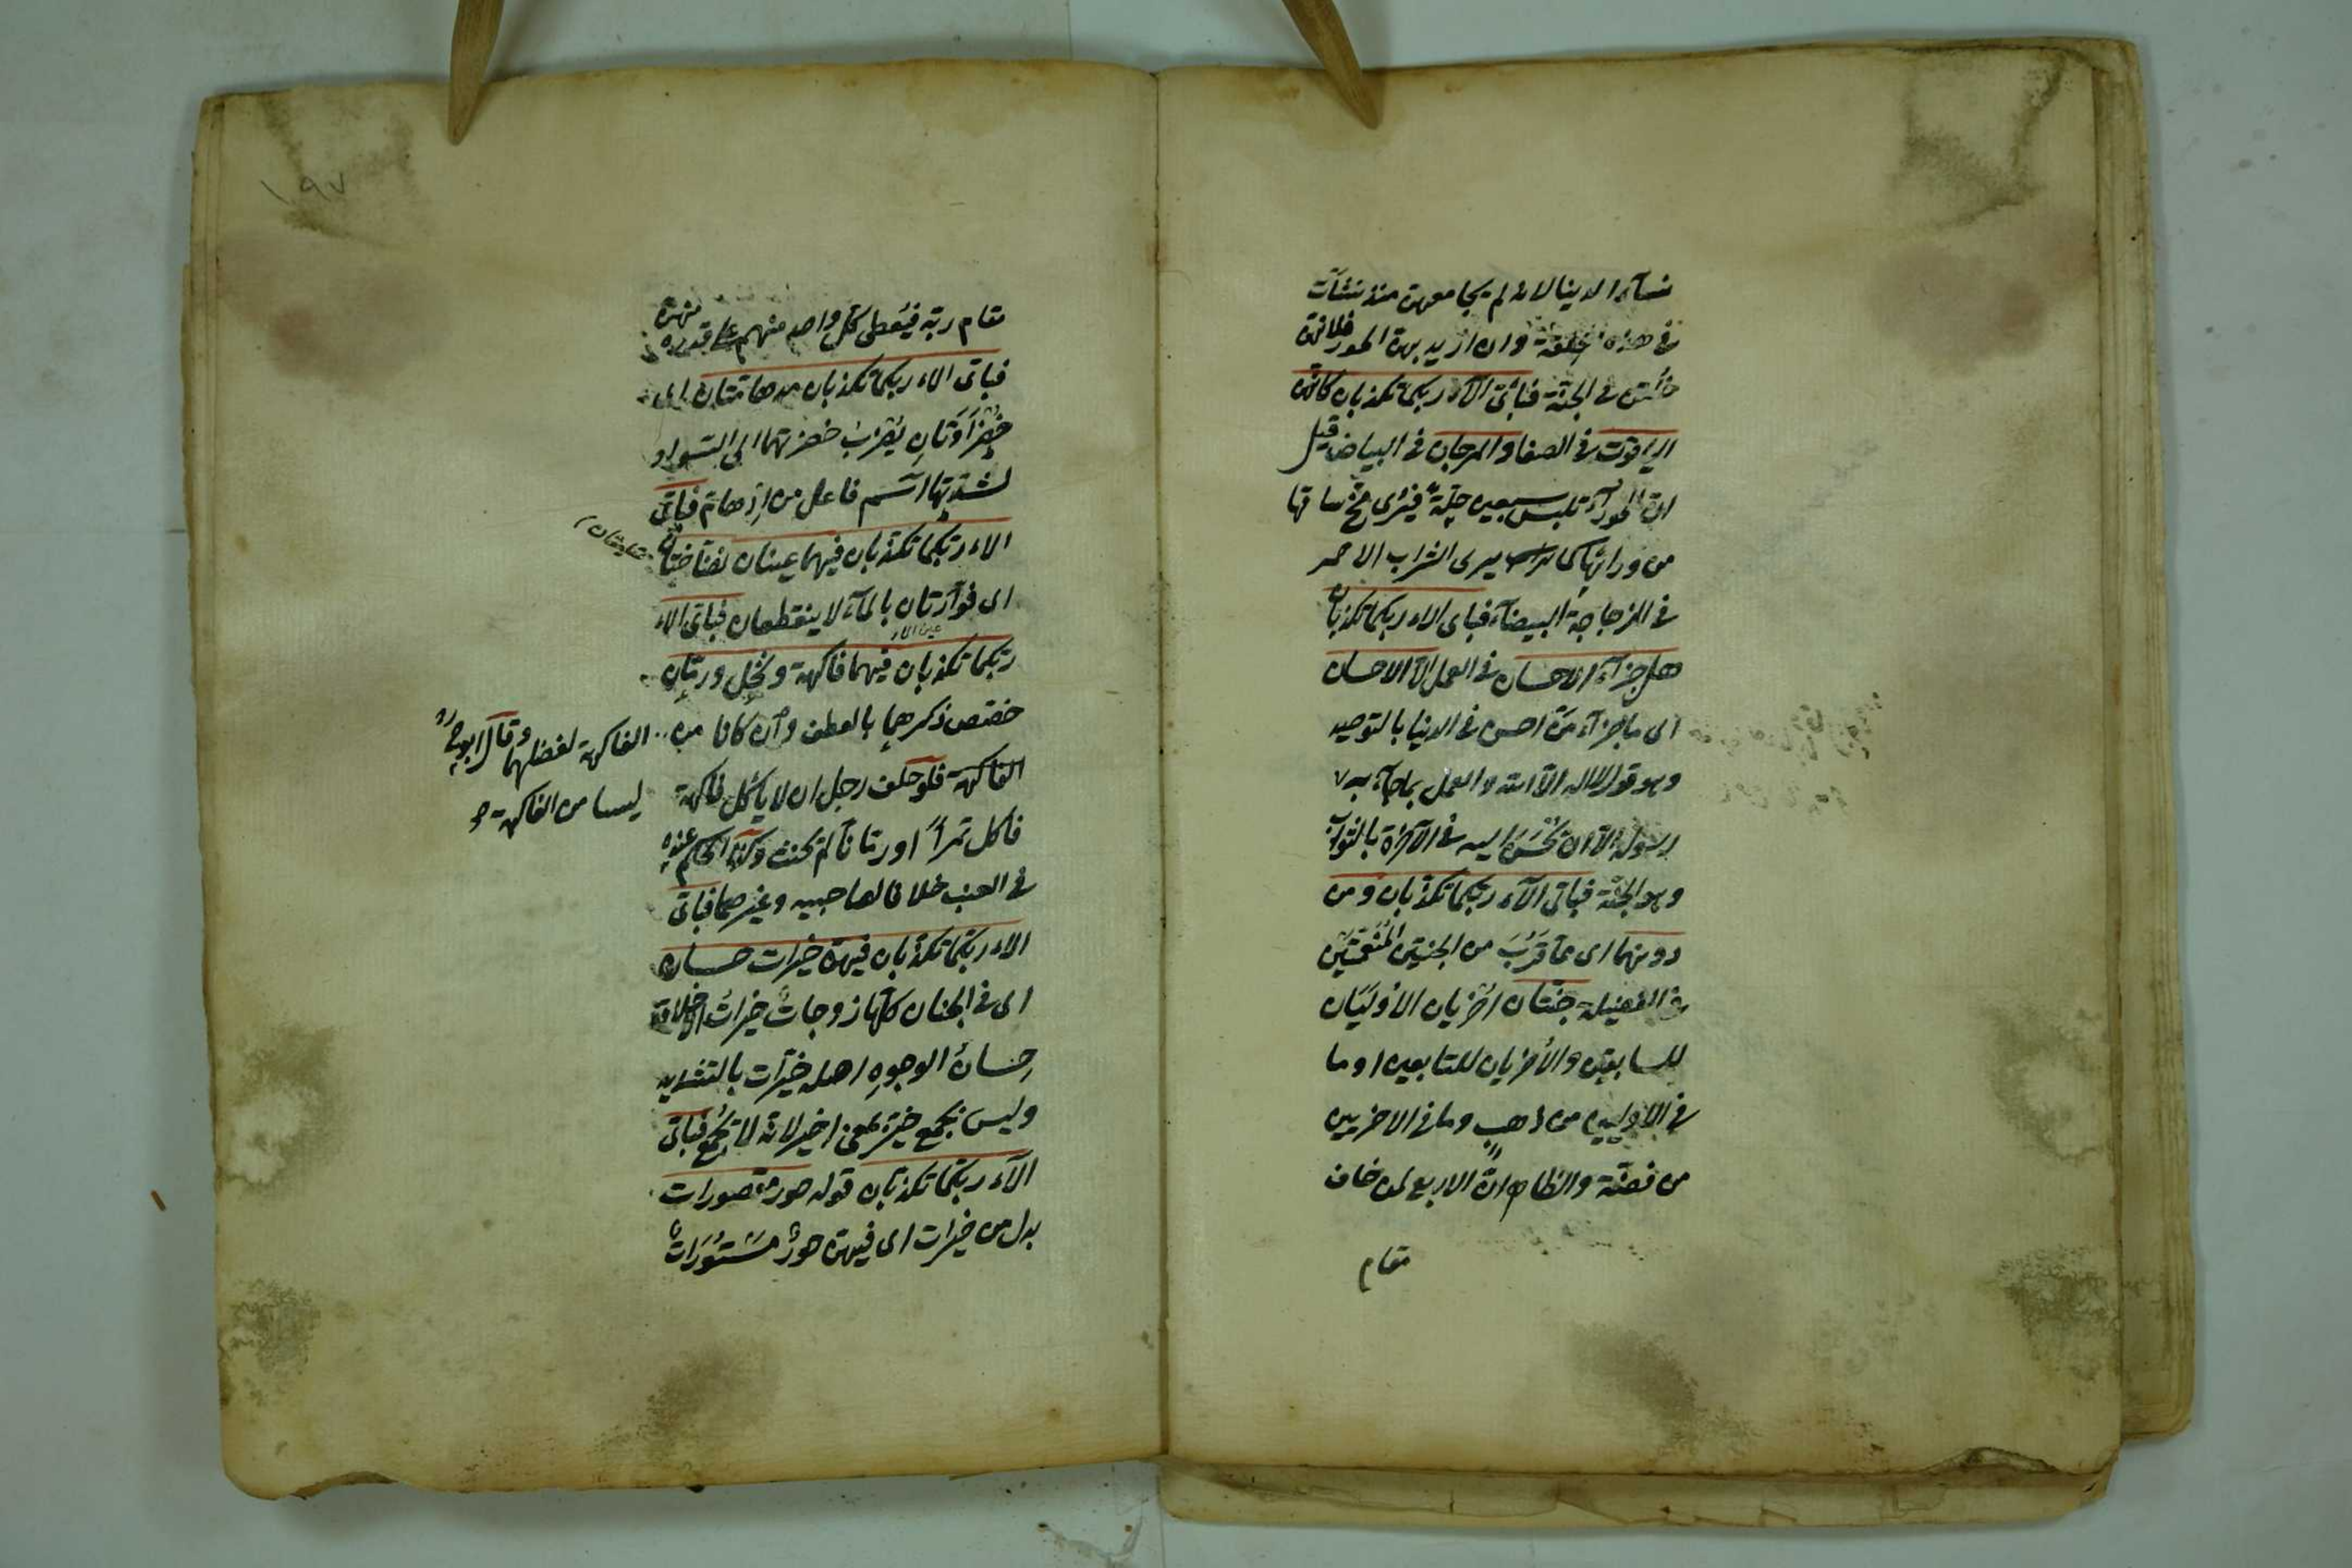 نسآء الدينا لانه لم يجامعهن منذ نشأت
في هذه الخلقة وان ازيد بهن الحور فلانهن
خلقن في الجنة فبأي الآء ربكما تكذبان كانهن
الياقوت في الصفا والمرجان في البياض قيل
ان الحورآء تلبس سبعين حلّة فيُرى مخ ساقها
من ورائها كما يرى الشراب الاحمر
في الزجاجة البيضآء فباى الاء ربكما تكذبان
هل جزآء الاحسان في العمل الا الاحسان
اى ما جزآء مَن احسن في الدنيا بالتوحيد
وهو قول لا اله الا الله والعمل بما جآء به
رسوله الا ان يُحْسَن اليه في الآخرة بالثواب
وهو الجنّة فباى الآء ربكما تكذبان ومن
دونهما اى مما قَرُبَ من الجنتين المتقدمتين
في الفضيلة جنّتان اخريان الأوليَان
للسابقين والأخريان للتابعين او ما
في الاوليين من ذهب وما في الاخريين
من فضّة والظاهر انّ الاربع لمن خاف
مقام
١٩٧
مقام ربّه فيُعطى كل واحد منهم على قدره
فباى الاء ربكما تكذبان مدهامّتان اى
خَضْرَاوَتَانِ يَقْرُبُ خضرتهما الى السّواد
لشدّتها اسم فاعل من اِدْهامّ فباى
الاء ربّكما تكذبان فيهما عينان نضّاختان
اى فوّارتان بالمآء لا ينقطعان فباى الاء
ربّكما تكذبان فيهما فاكهة ونخل ورمّان
خصّص ذكرهما بالعطف وان كانا من
الفاكهة لفضلهما وقال ابو ح رد
ليسا من الفاكهة
الفاكهة فلو حلف رجل ان لا يأكل فاكهة
فاكل تمراً او رمّاناً لم يحنث وكذا الحكم عنده
في العنب خلافا لصاحبيه وغيرهما فباى
الاء ربّكما تكذّبان فيهنّ خيرات حسان
اى في الجنان كلّها زوجاتٌ خيراتُ الاخلاق
حِسانُ الوجوهِ اصله خيّرات بالتشديد
وليس بجمع خير بمعنى اخير لانه لا يُجْمَعُ فباى
الآء ربّكما تكذّبان قوله حور مقصورات
بدل من خيرات اى فيهنّ حورٌ مَسْتُورَاتٌ